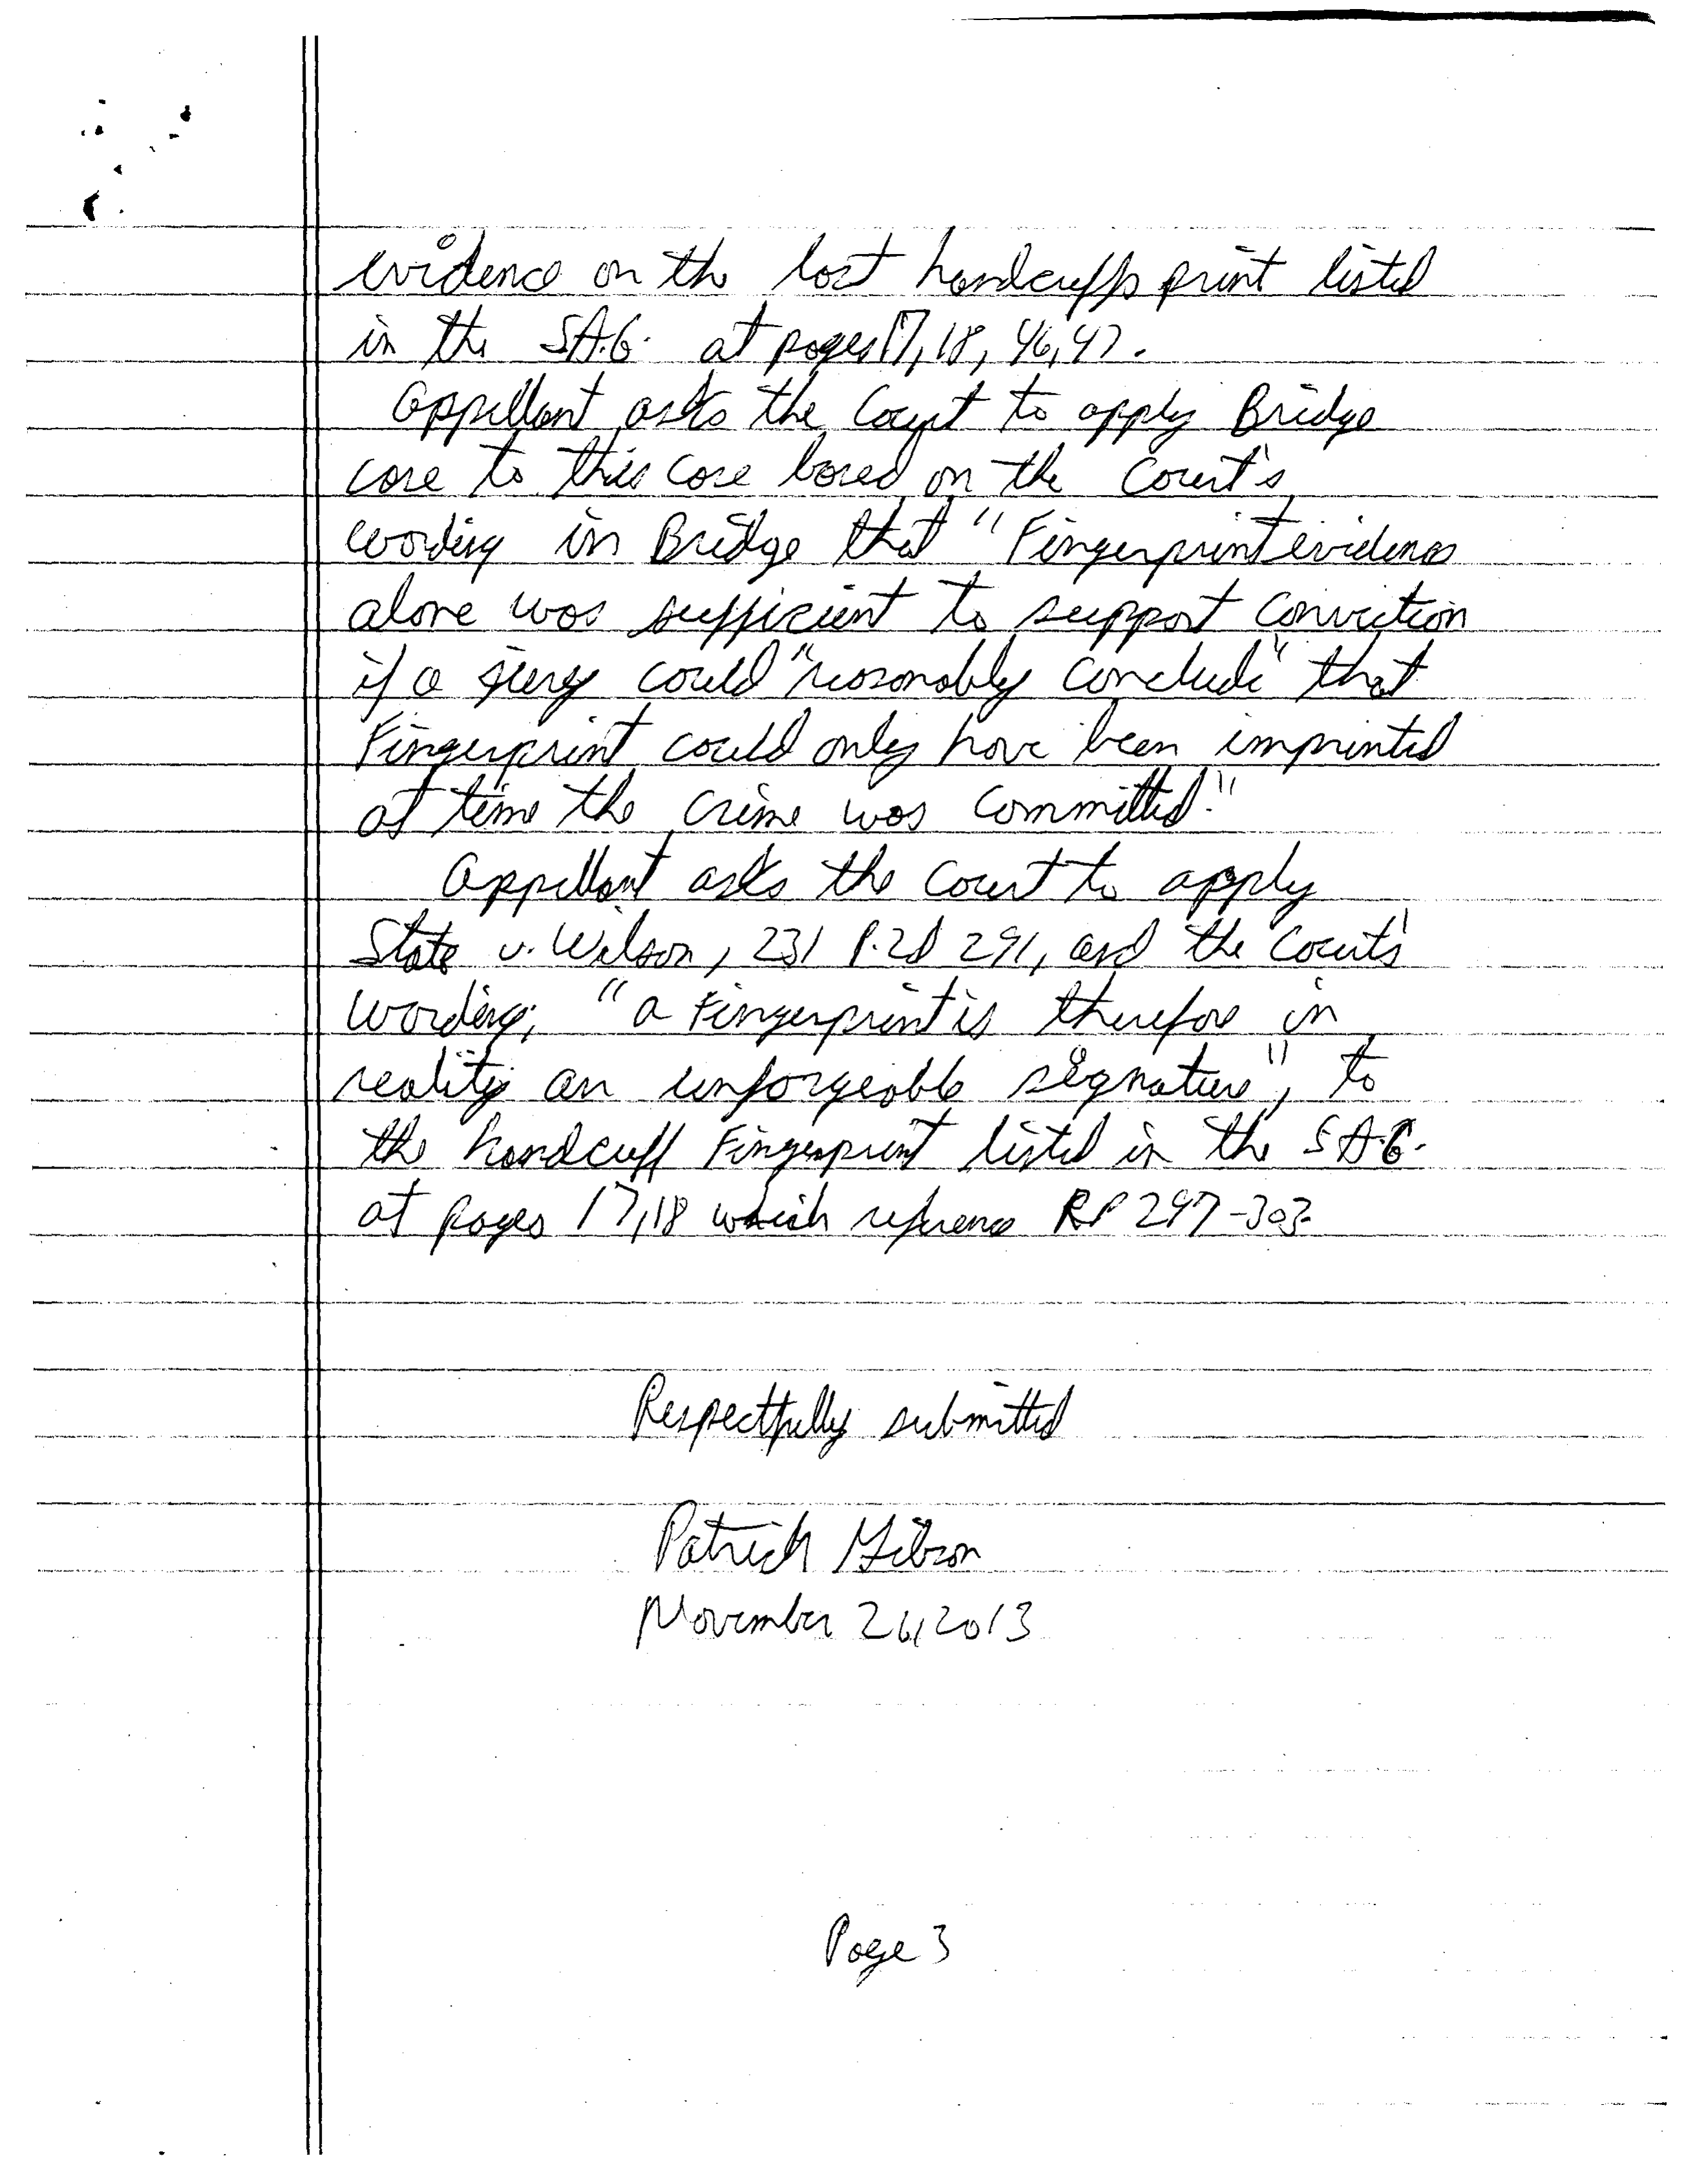 evidence on the lost handcuffs print listed
in the S.A.G. at pages 17, 18, 46, 47.
Appellant asks the Court to apply Bridge
case to this case based on the Court's
wording in Bridge that "Fingerprint evidence
alone was sufficient to support conviction
if a jury could "reasonably conclude" that
Fingerprint could only have been imprinted
at time the crime was committed."
Appellant asks the Court to apply
State v. Wilson, 231 P.2d 291, and the Court's
wording; "a Fingerprint is therefore in
reality an unforgeable signature", to
the handcuff Fingerprint listed in the S.A.G.
at pages 17, 18 which reference RP 297-303
Respectfully submitted
Patrick Gibson
November 26, 2013
Page 3